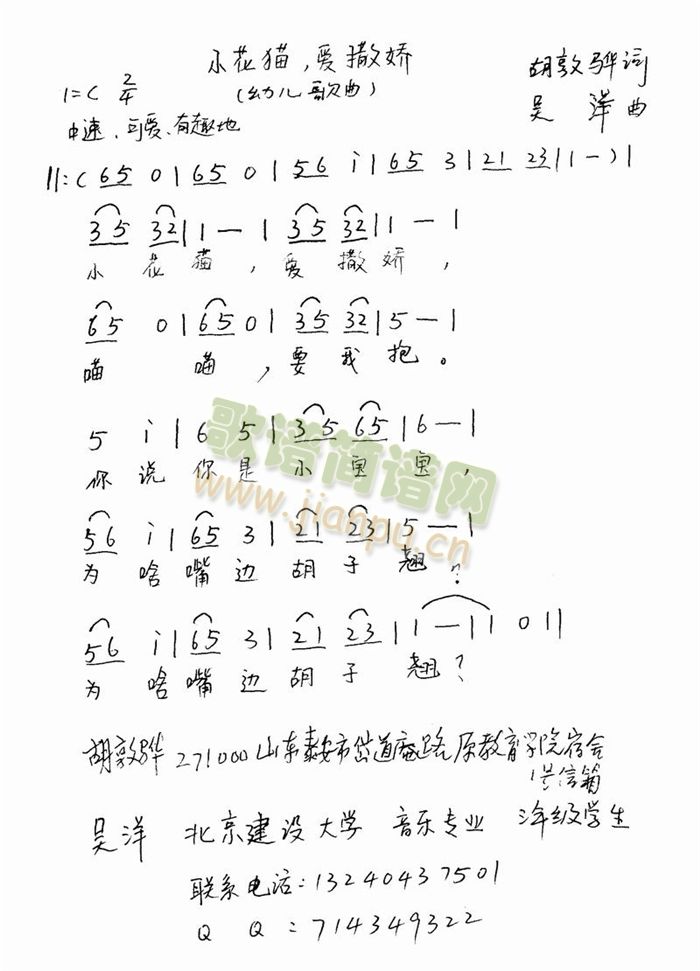 小花猫，爱撒娇
1=C 2/4 （幼儿歌曲） 胡敦骅词
吴 洋 曲
中速、可爱、有趣地
||:( 65 0 | 65 0 | 56 i | 65 3 | 21 23 | 1 - ) |
35 32 | 1 — | 35 32 | 1 — |
小 花 猫，爱 撒 娇，
65 0 | 65 0 | 35 32 | 5 — |
喵 喵，要 我 抱。
5 i | 6 5 | 35 65 | 6 — |
你 说 你 是 小 宝 宝，
56 i | 65 3 | 21 23 | 5 — |
为 啥 嘴 边 胡 子 翘？
56 i | 65 3 | 21 23 | 1 — | 1 0 ||
为 啥 嘴 边 胡 子 翘？
歌谱简谱网
www.jianpu.cn
胡敦骅 271000 山东泰安市岱道庵路原教育学院宿舍
信箱
吴洋 北京建设大学 音乐专业 年级学生
联系电话：13240437501
Q Q ：714349322